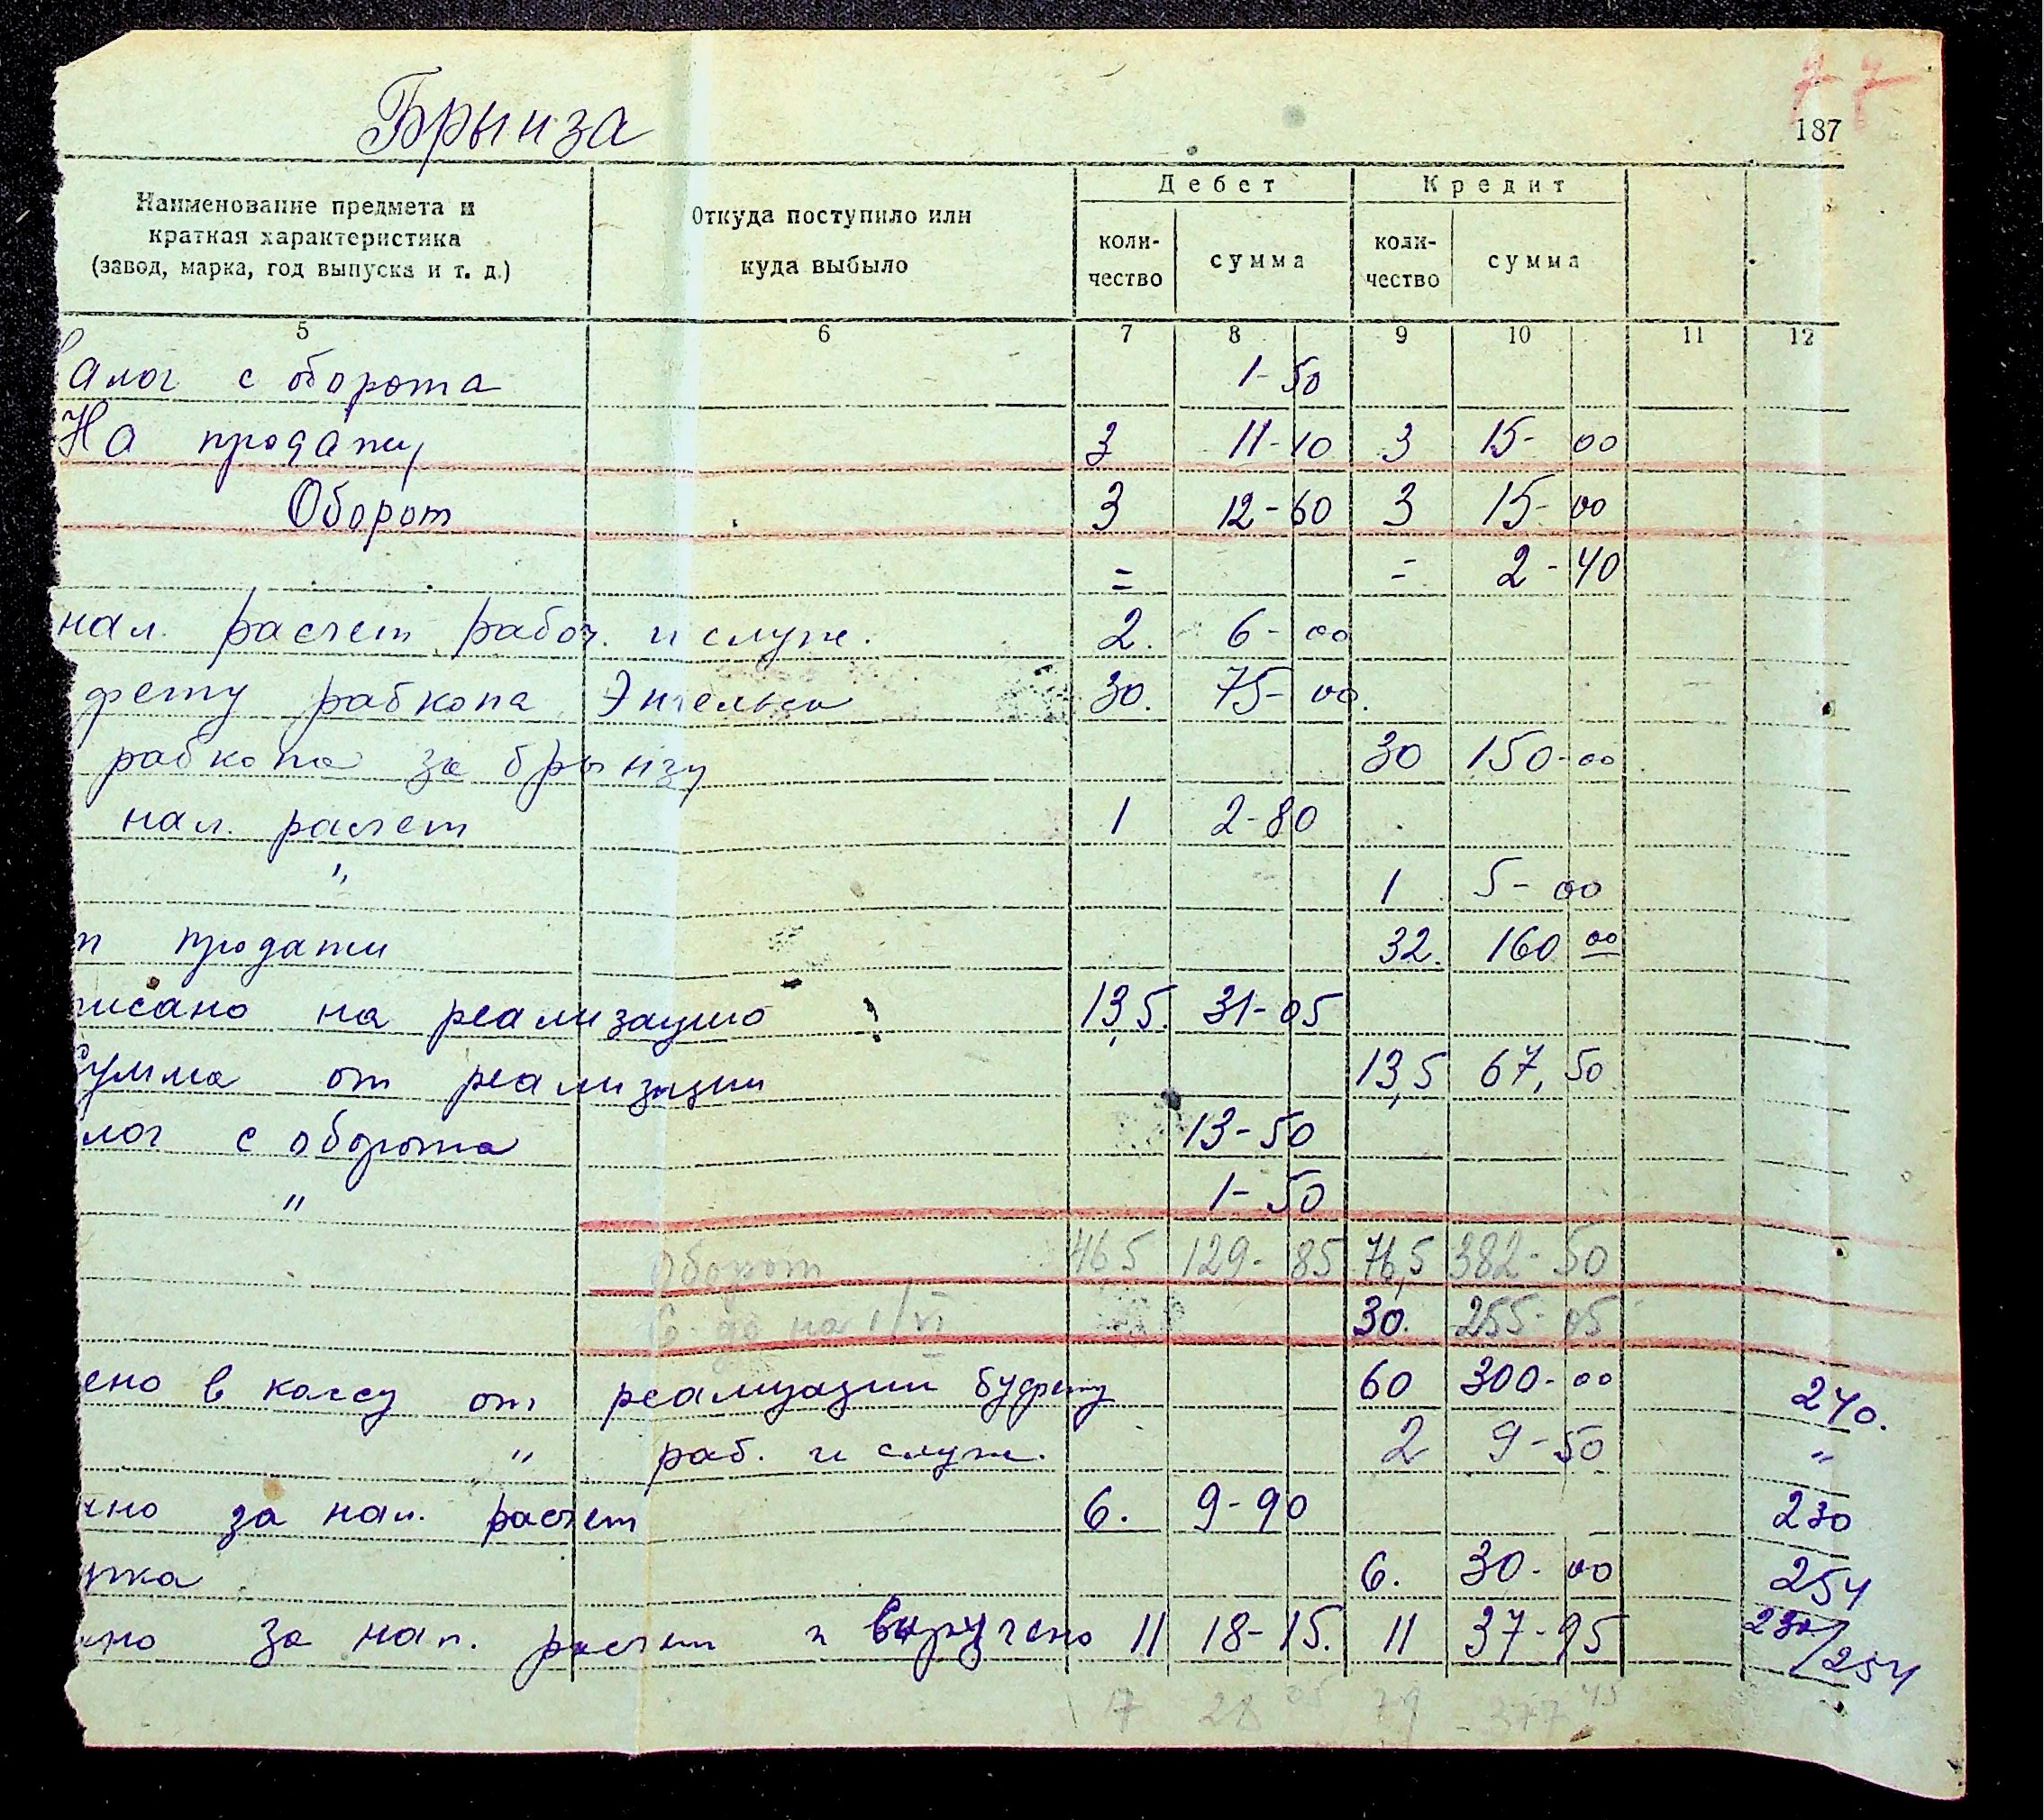 77
Брынза
187
Наименование предмета и краткая характеристика (завод, марка, год выпуска и т. д.) Откуда поступило или куда выбыло Дебет Кредит
коли-чество сумма коли-чество сумма
5 6 7 8 9 10 11 12
алог с оборота 1-50
На продажу 3 11-10 3 15-00
Оборот 3 12-60 3 15-00
= = 2-40
нал. расчет рабоч. и служ. 2. 6-00
фету рабкопа Энгельса 30. 75-00.
рабкопа за брынзу 30 150-00
нал. расчет 1 2-80
" 1 5-00
продажи 32. 160 00
писано на реализацию 13,5. 31-05
Сумма от реализации 13,5 67,50
лог с оборота 13-50
" 1-50
Оборот 46 5 129-85 76,5 382-50
С-до на 1/VI 30. 255-05
ено в кассу от реализации буфету 60 300-00 240.
" раб. и служ. 2 9-50 "
но за нал. расчет 6. 9-90 230
6. 30-00 254
но за нал. расчет и выручено 11 18-15. 11 37-95 230/254
17 28 05 79 377 45